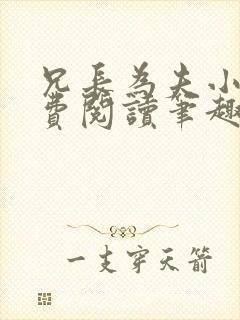 兄長為夫小
費閱讀筆趣
一支穿天箭